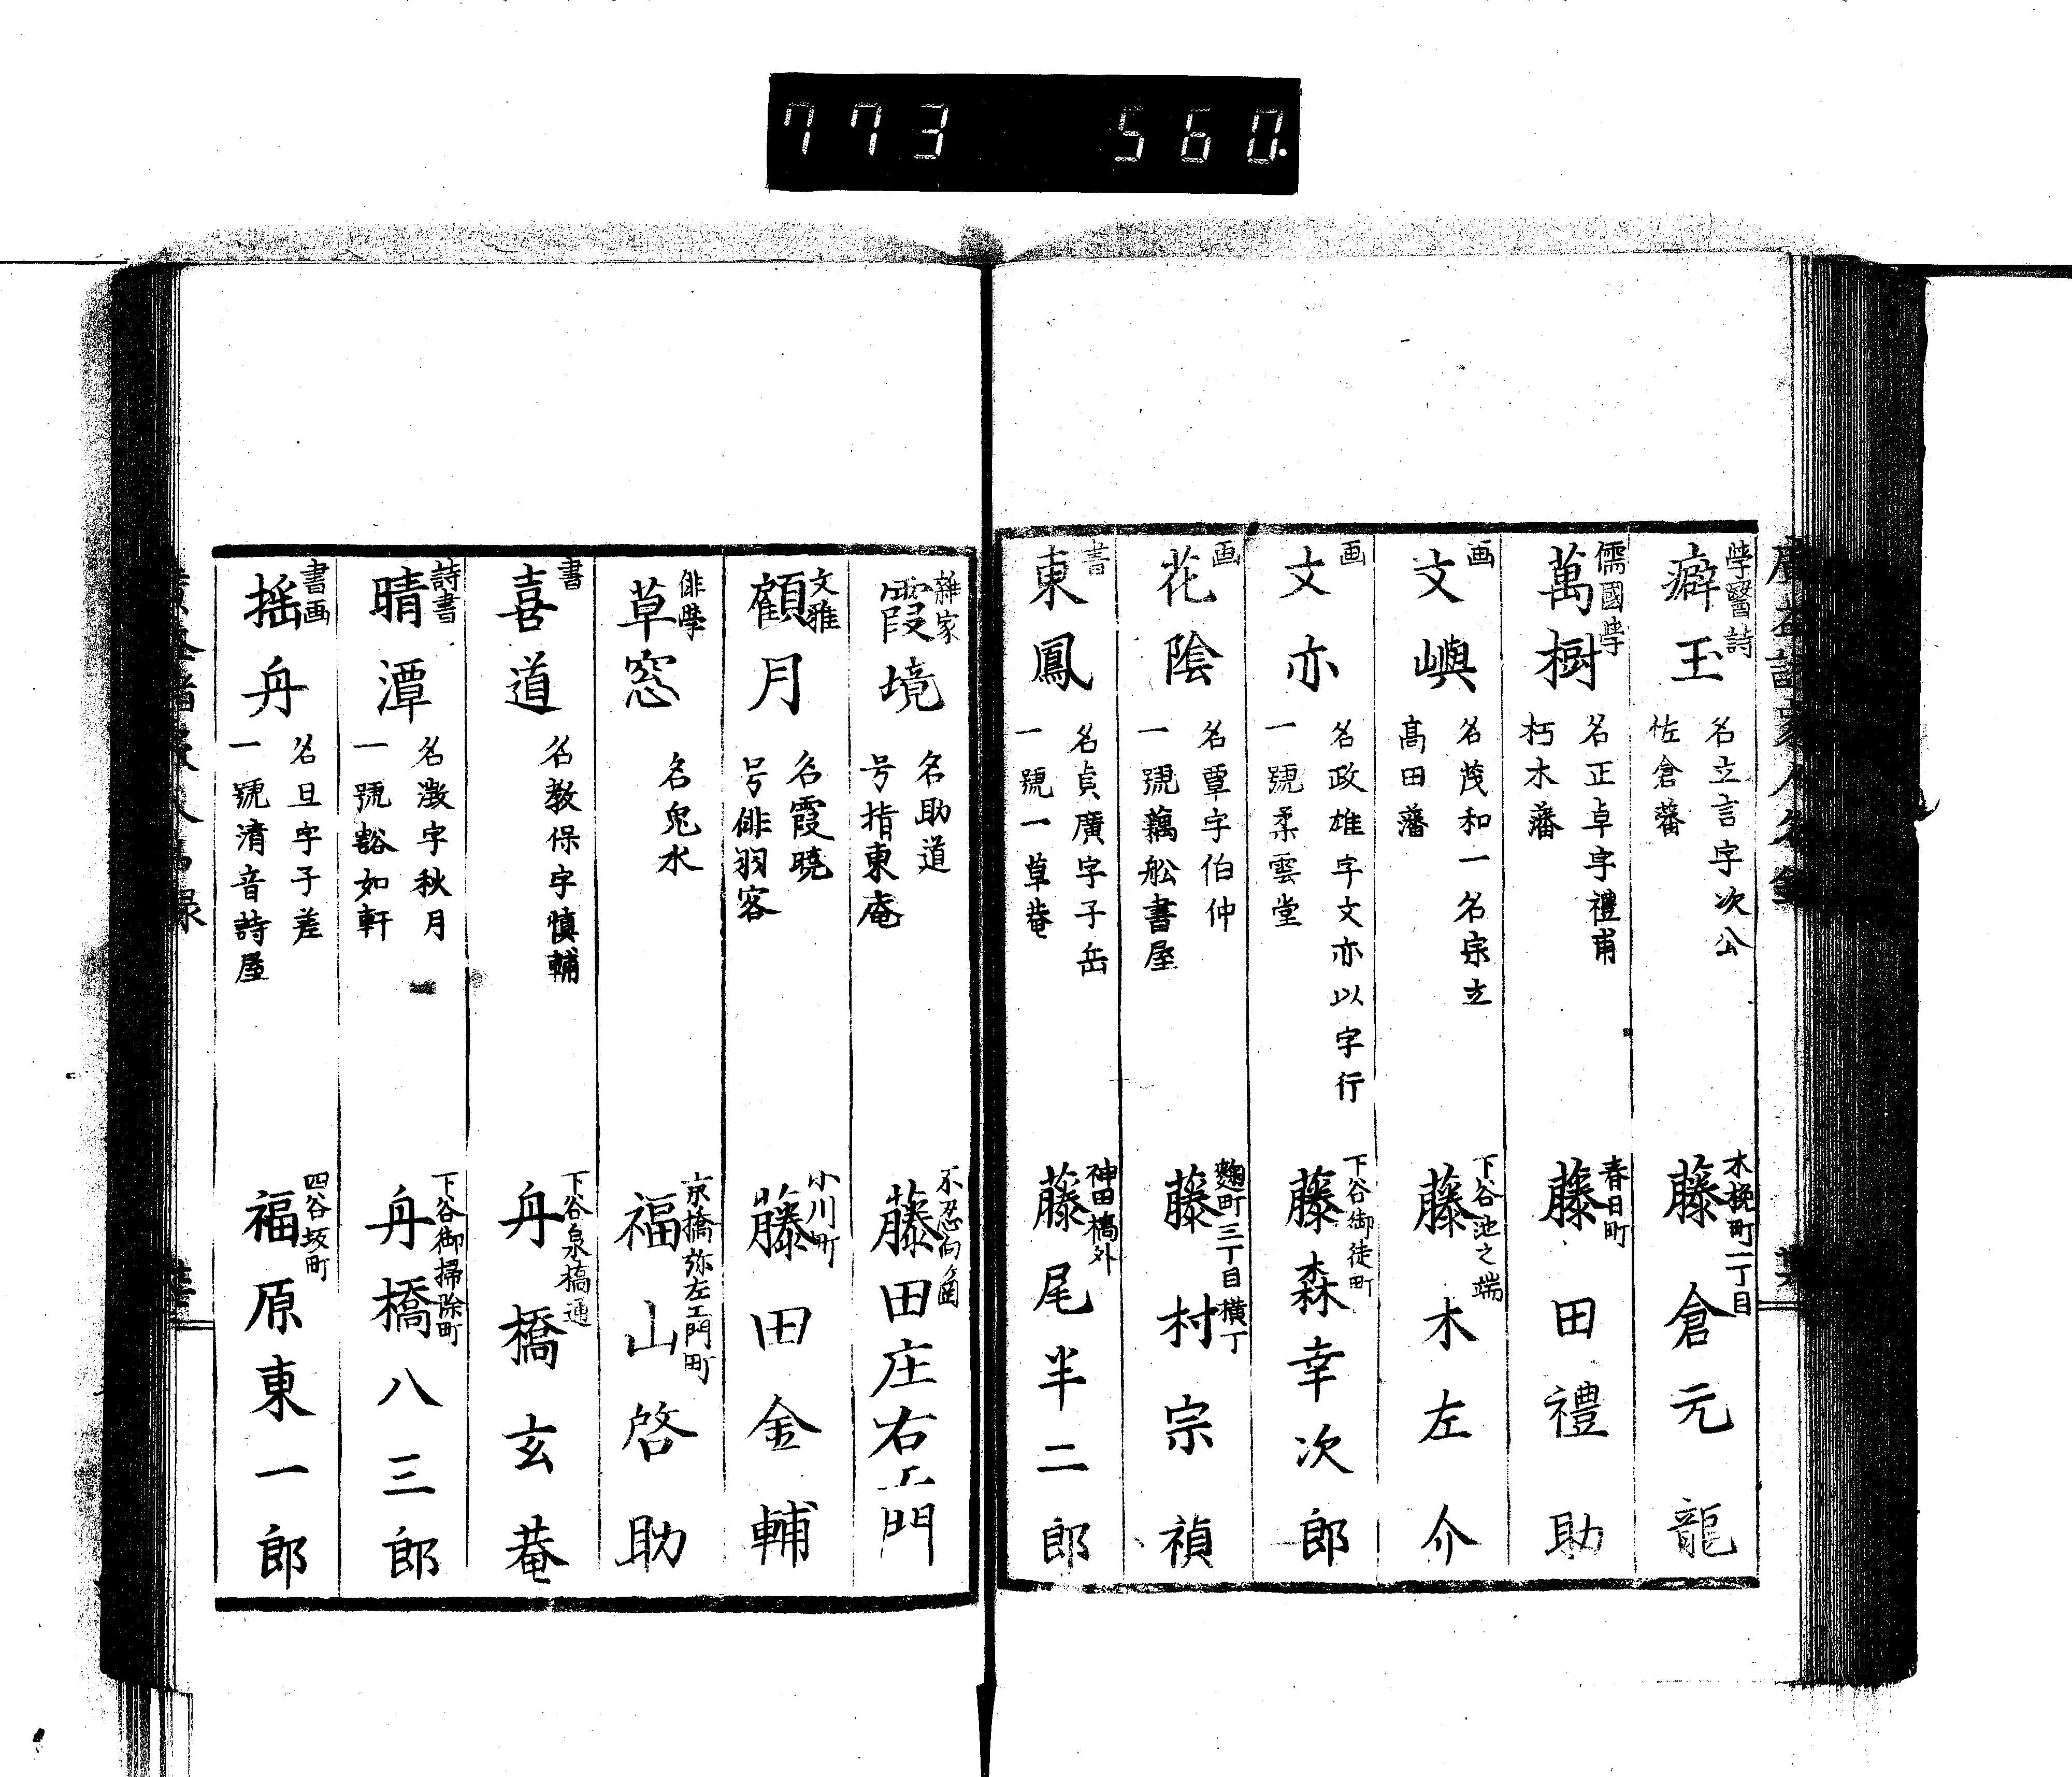 773 560.
廣益諸家人名録
學醫詩
癖玉
名立言字次公
佐倉藩
木挽町二丁目
藤倉元龍
儒國學
萬樹
名正卓字禮甫
朽木藩
春日町
藤田禮助
画
文嶼
名茂和一名宗立
髙田藩
下谷池之端
藤木左介
画
文亦
名政雄字文亦以字行
一號柔雲堂
下谷御徒町
藤森幸次郎
画
花陰
名覃字伯仲
一號藕舩書屋
麹町三丁目横丁
藤村宗禎
書
東鳳
名貞廣字子岳
一號一草菴
神田橋外
藤尾半二郎
雜家
霞境
名助道
号揩東庵
不忍向ヶ岡
藤田庄右エ門
文雅
顧月
名霞暁
号俳羽客
小川町
藤田金輔
俳學
草窓
名兎水
京橋弥左エ門町
福山啓助
書
喜道
名教保字慎輔
下谷泉橋通
舟橋玄菴
詩書
晴潭
名澂字秋月
一號豁如軒
下谷御掃除町
舟橋八三郎
書画
揺舟
名旦字子差
一號清音詩屋
四谷坂町
福原東一郎